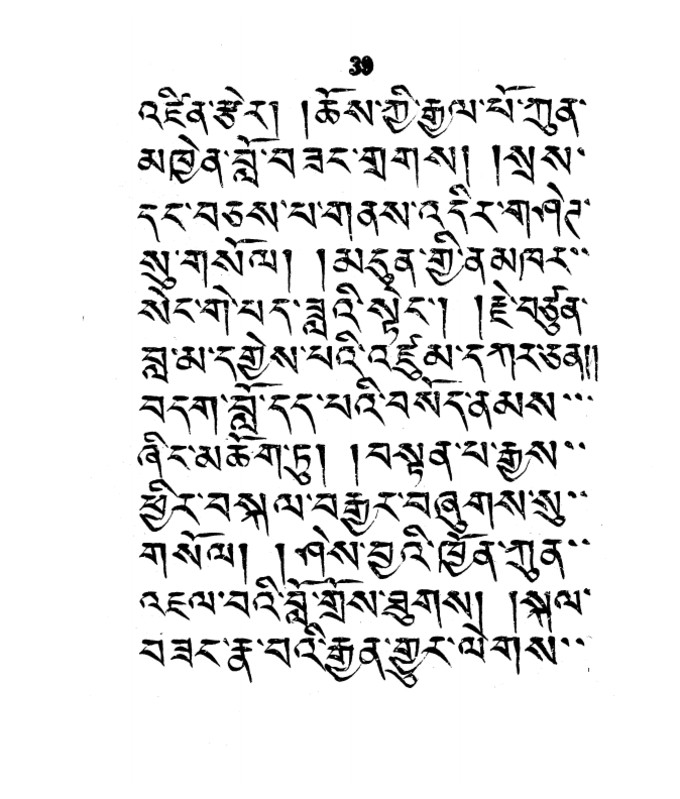 39
འཛིན་རྩེར། །ཆོས་ཀྱི་རྒྱལ་པོ་ཀུན་
མཁྱེན་བློ་བཟང་གྲགས། །སྲས་
དང་བཅས་པ་གནས་འདིར་གཤེཊ་
སུ་གསོལ། །མདུན་གྱི་ནམ་མཁར་་
སེང་གེ་པད་ཟླའི་སྟེང་། །རྗེ་བཙུན་
བླ་མ་དགྱེས་པའི་འཛུམ་དཀར་ཅན།།
བདག་བློ་དད་པའི་བསོད་ནམས་་་
ཞིང་མཆོག་ཏུ། །བསྟན་པ་རྒྱས་་་
ཕྱིར་བསྐལ་བརྒྱར་བཞུགས་སུ་་
གསོལ། །ཤེས་བྱའི་ཁྱོན་ཀུན་་
འཇལ་བའི་བློ་གྲོས་ཐུགས། །སྐལ་
བཟང་རྣ་བའི་རྒྱན་གྱུར་ལེགས་་